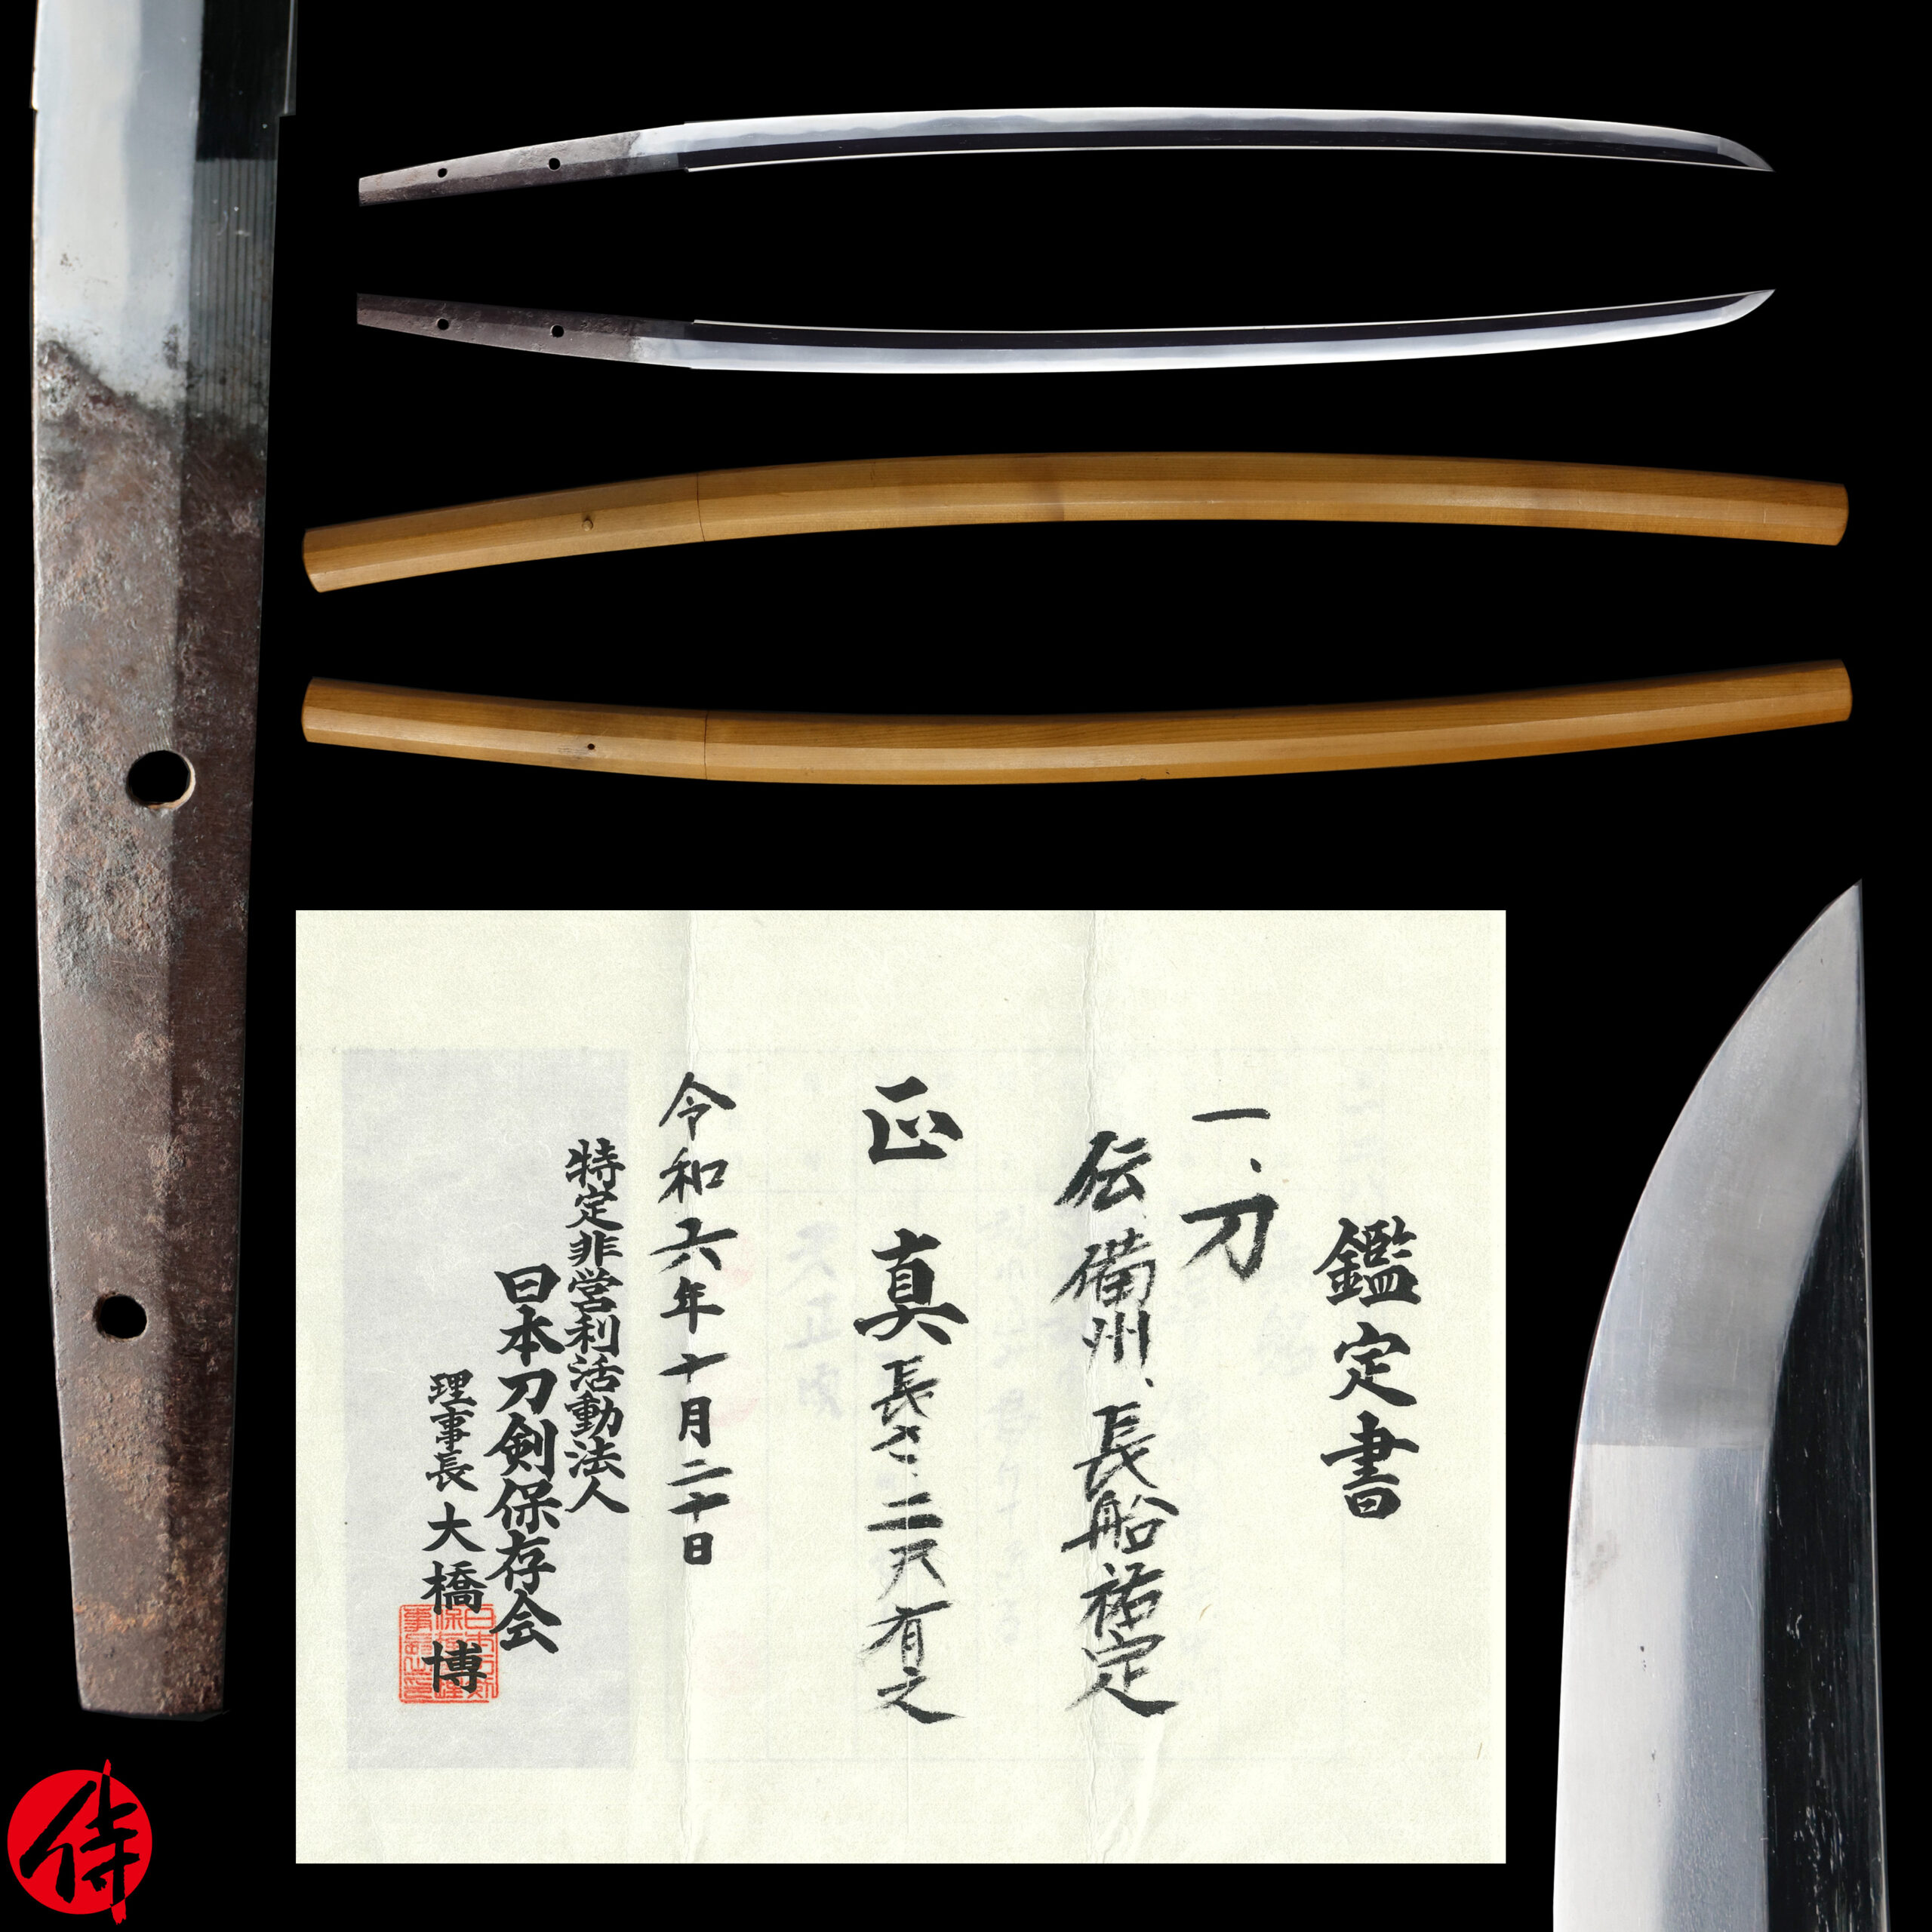 鑑定書
一、刀
伝備州、長船祐定
正真長さ、二尺有之
令和六年十月二十日
特定非営利活動法人
日本刀剣保存会
理事長大橋博
侍